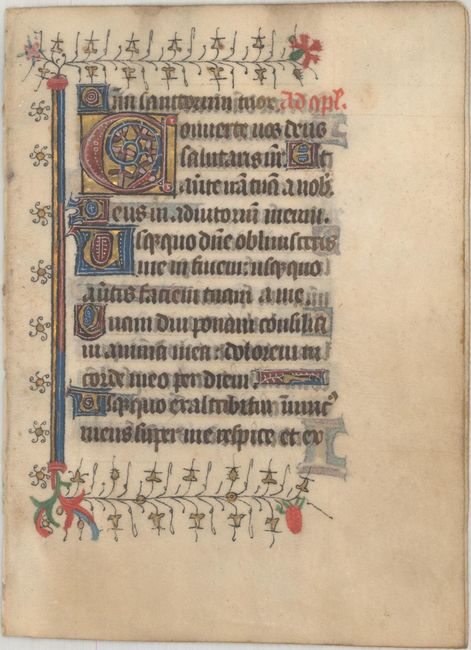 Om̄ sanctorum tuor Ad cpl̄.
Conuerte nos deus
salutaris nr̄. Et
auerte irā tuā a nob̄.
Deus in adiutorium meum.
Usq̨quo dn̄e obliuisceris
me in finem: usquequo
auertis faciem tuam a me.
Quam diu ponam consilia
in anima mea: dolorem in
corde meo per diem.
Usq̨quo exaltabitur inimic⁹
meus super me respice et ex